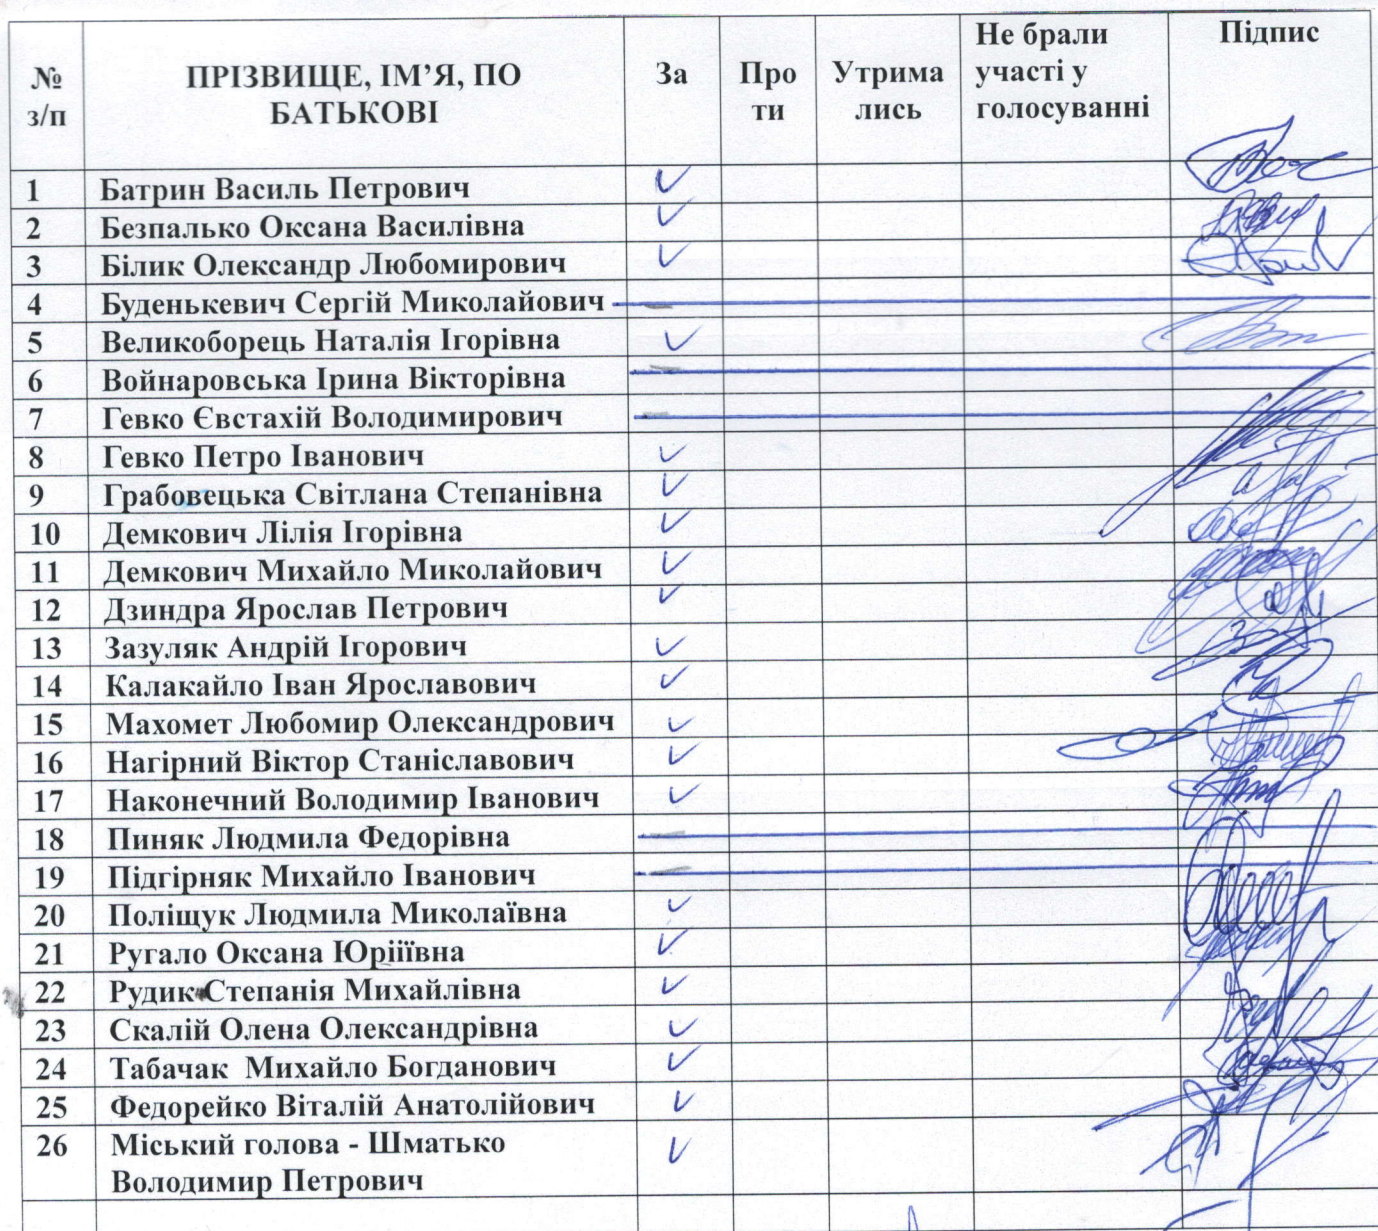 № з/п ПРІЗВИЩЕ, ІМ’Я, ПО БАТЬКОВІ За Про ти Утрима лись Не брали участі у голосуванні Підпис
1 Батрин Василь Петрович
2 Безпалько Оксана Василівна
3 Білик Олександр Любомирович
4 Буденькевич Сергій Миколайович
5 Великоборець Наталія Ігорівна
6 Войнаровська Ірина Вікторівна
7 Гевко Євстахій Володимирович
8 Гевко Петро Іванович
9 Грабовецька Світлана Степанівна
10 Демкович Лілія Ігорівна
11 Демкович Михайло Миколайович
12 Дзиндра Ярослав Петрович
13 Зазуляк Андрій Ігорович
14 Калакайло Іван Ярославович
15 Махомет Любомир Олександрович
16 Нагірний Віктор Станіславович
17 Наконечний Володимир Іванович
18 Пиняк Людмила Федорівна
19 Підгірняк Михайло Іванович
20 Поліщук Людмила Миколаївна
21 Ругало Оксана Юріїївна
22 Рудик Степанія Михайлівна
23 Скалій Олена Олександрівна
24 Табачак Михайло Богданович
25 Федорейко Віталій Анатолійович
26 Міський голова - Шматько
Володимир Петрович